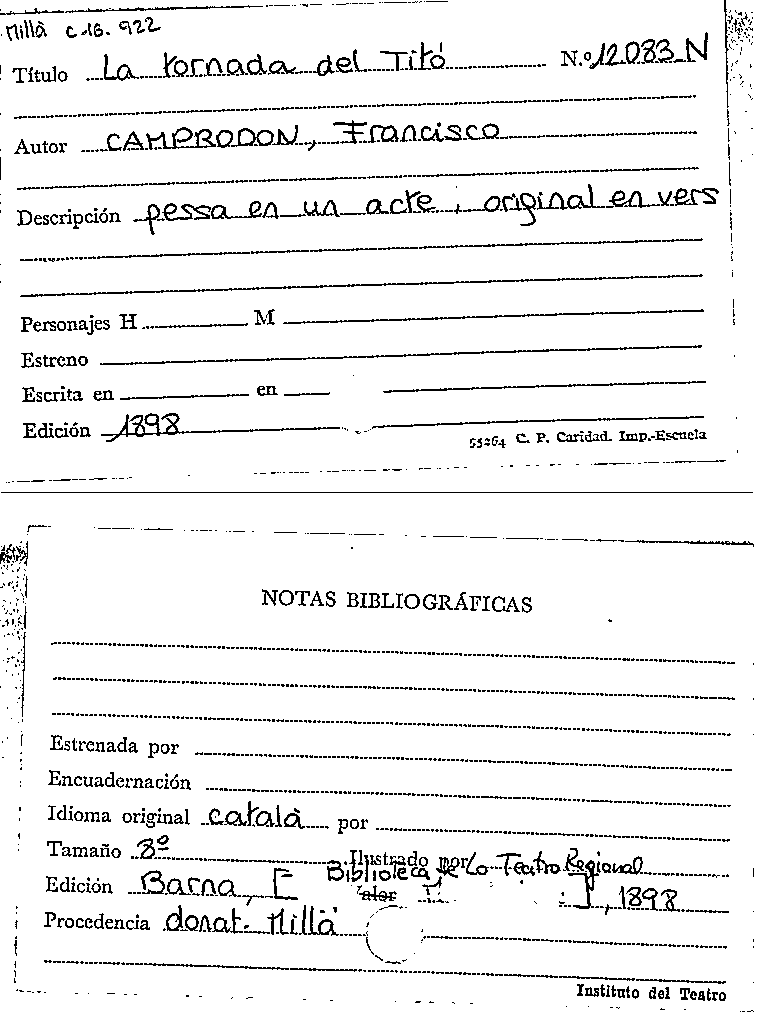 Millà C-16. 922
Título La tornada del Titó N.º 12.083-N
Autor CAMPRODON, Francisco
Descripción pessa en un acte, original en vers
Personajes H M
Estreno
Escrita en en
Edición 1898
55264 C. P. Caridad. Imp.-Escuela
NOTAS BIBLIOGRÁFICAS
Estrenada por
Encuadernación
Idioma original català por
Tamaño 8º Ilustrado por
Biblioteca de Lo Teatro Regional
Edición Barna, [ Valor ], 1898
Procedencia donat. Millà
Instituto del Teatro